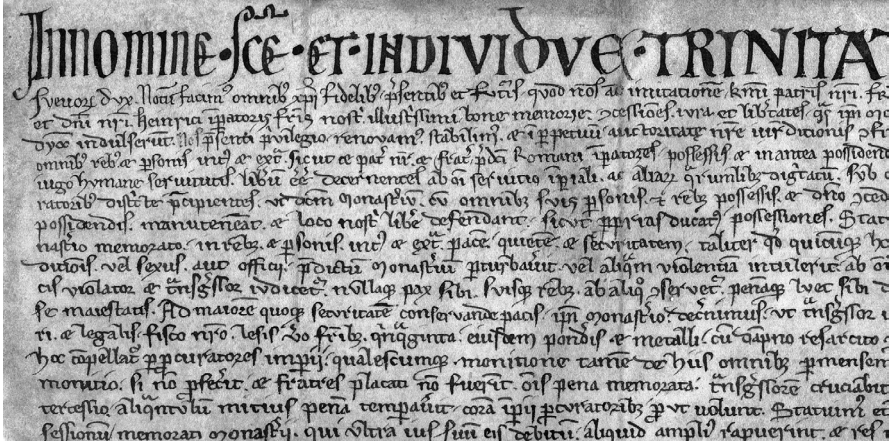 IN NOMINE · SCE · ET · INDIVIDVE · TRINITAT
Suevorū dux. Notū facim' omnib' xpi fidelib' p̄sentib' et fut̄is quod nos ac imitatione kmī patris nr̄i. Fr
et dn̄i nr̄i. heinrici īpatoris fr̄is nostri illustrissimi bone memorie
indulserunt. Nos p̄senti p̄vilegio renovam'. stabilim'. et ī ppetuum auctoritate nr̄e
omnib' reb' et p̄sonis int' et ext̄. sicut et pat̄ nr̄ et frat̄ p̄dc̄i Romani īpatores possessis et in antea possidend
iugo humane servitutis. lib̄um ēē decernentes ab oī servitio īpiali. ac aliar q̄rumlib' dignitatū. sub
p̄cipientes. ut dc̄m monast̄ium. cū omnib' suis p̄sonis. et reb' possessis. et dn̄o
possidendis. manuteneāt. et loco nostro lib̄e defendant. sicut pp̄rias ducat' possessiones. Statu
nastio memorato. in reb' et p̄sonis. int' et ext̄. pacē. quietē et securitatem. taliter qd quicūque
ditionis. vel sexus. aut officii. p̄dictum monast̄ium pturbaverit. vel aliq̄m violentiā intulerit. ab oī
cis violator et t̄nsg̃ssor iudicet̄. nullaque pax sibi. suisque reb'. ab aliq° 9servet̄. penaque luet sibi d
se maiestatis. Ad maiorē quoque securitatē conservande pacis ipī monast̄io. dec̄nimus. ut t̄nsg̃ssor
ri. et legalis. fisco nr̄o. lesis v̄o fr̄ib'. q̄nq̄ginta. eiusdem pond̄is et metalli. cū dāpno resarcito
hoc cōpellat̄ p pcuratores imperii. qualescumque. monitione tamē de hiis omnib' p mensem
monitio. si nō pfec̄it. et fratres placati nō fuerint. ōis pena memorata. t̄nsg̃ssorē cruciabit
tercessio aliq̄ntulum mitius penā tempaverit. corā ipii pcuratorib' put volunt. Statuim' et
sessionū memorati monast̄ii. qui ultra ius suū eis debitū. aliquid ampli' rapuerint. et res